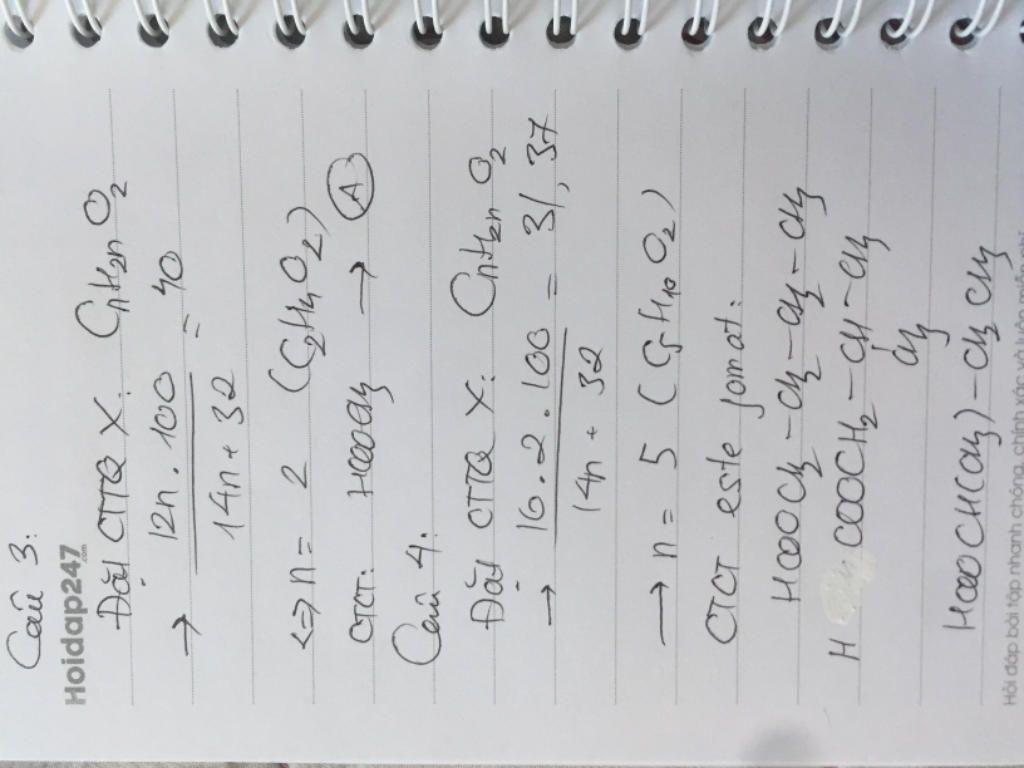 Câu 3:
Hoidap247.com
Đặt CTTQ X: CnH2nO2
→ 12n.100 / 14n+32 = 40
<=> n = 2 (C2H4O2)
CTCT: HCOOCH3 → (A)
Câu 4.
Đặt CTTQ X: CnH2nO2
→ 16.2.100 / 14n+32 = 31,37
→ n = 5 (C5H10O2)
CTCT este fomat:
HCOOCH2-CH2-CH2-CH3
H COOCH2-CH-CH3
CH3
HCOOCH(CH3)-CH2CH3
Hỏi đáp bài tập nhanh chóng, chính xác và luôn miễn phí!